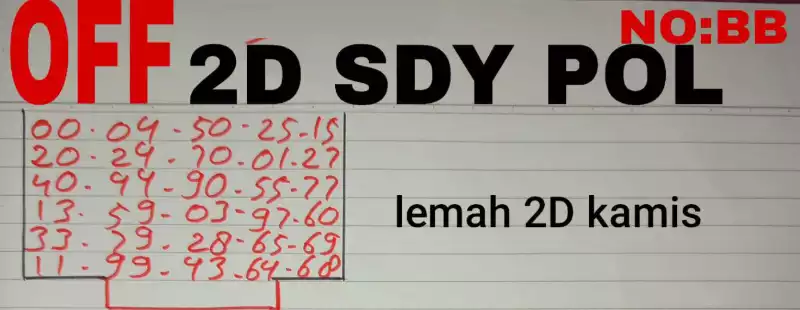 OFF 2D SDY POL NO:BB
00.04-50-25-15
20.24-70-01.27
40.44-90-55-77
13.59-03-97-60
33.39-28-65-69
11-99-43-64-68
lemah 2D kamis